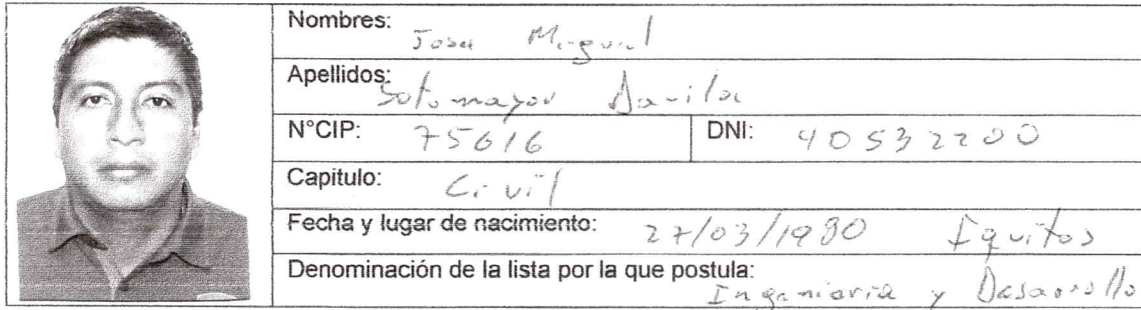 Nombres: Jose Miguel
Apellidos: Sotomayor Davila
N°CIP: 75616 DNI: 40532200
Capitulo: Civil
Fecha y lugar de nacimiento: 27/03/1980 Iquitos
Denominación de la lista por la que postula:
Ingenieria y Desarrollo